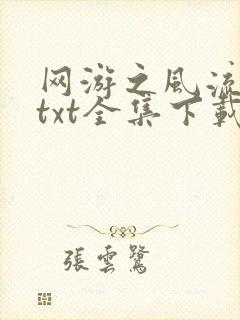 网游之风流
txt全集下載
張雲鷺